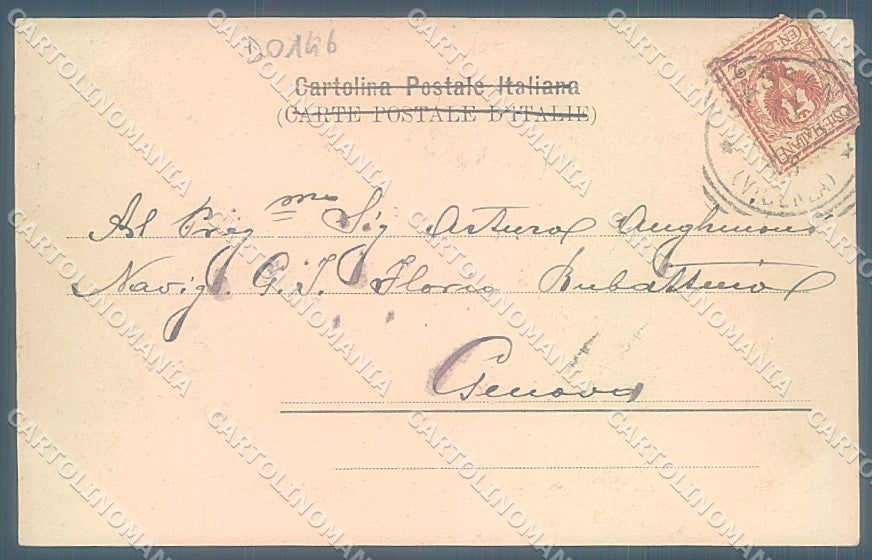 D0146
Cartolina Postale Italiana
(CARTE POSTALE D'ITALIE)
(VICENZA)
Al Preg mo Sig Arturo
Navig. G. I. Florio Rubattino
Genova
CARTOLINOMANIA